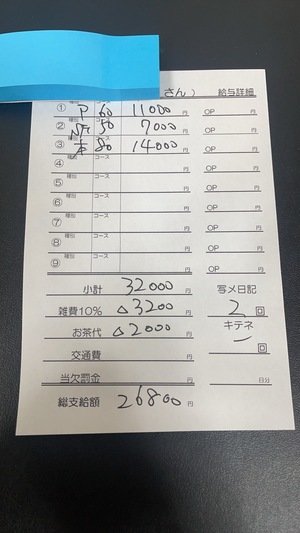 さん） 給与詳細
① 種別 P コース 60 11000 円 OP 円
② 種別 コース 50 7000 円 OP 円
③ 種別 本 コース 80 14000 円 OP 円
④ 種別 コース 円 OP 円
⑤ 種別 コース 円 OP 円
⑥ 種別 コース 円 OP 円
⑦ 種別 コース 円 OP 円
⑧ 種別 コース 円 OP 円
⑨ 種別 コース 円 OP 円
小計 32000 円 写メ日記
雑費10% △3200 円 2 回
お茶代 △2000 円 キテネ
交通費 円 一 回
当欠罰金 円 日分
総支給額 26800 円